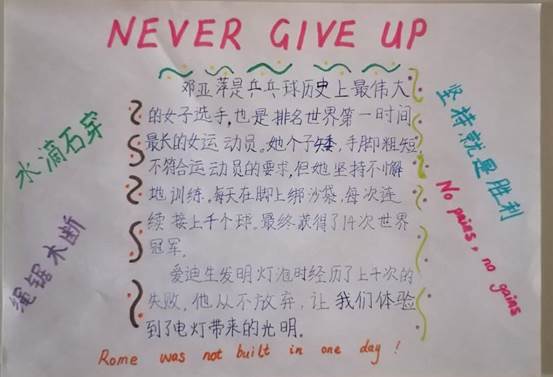 NEVER GIVE UP
邓亚萍是乒乓球历史上最伟大
的女子选手,也是排名世界第一时间
最长的女运动员。她个子矮,手脚粗短
不符合运动员的要求,但她坚持不懈
地训练。每天在脚上绑沙袋,每次连
续接上千个球。最终获得了14次世界
冠军。
爱迪生发明灯泡时经历了上千次的
失败,他从不放弃,让我们体验
到了电灯带来的光明。
水滴石穿
绳锯木断
坚持就是胜利
No pains, no gains
Rome was not built in one day!